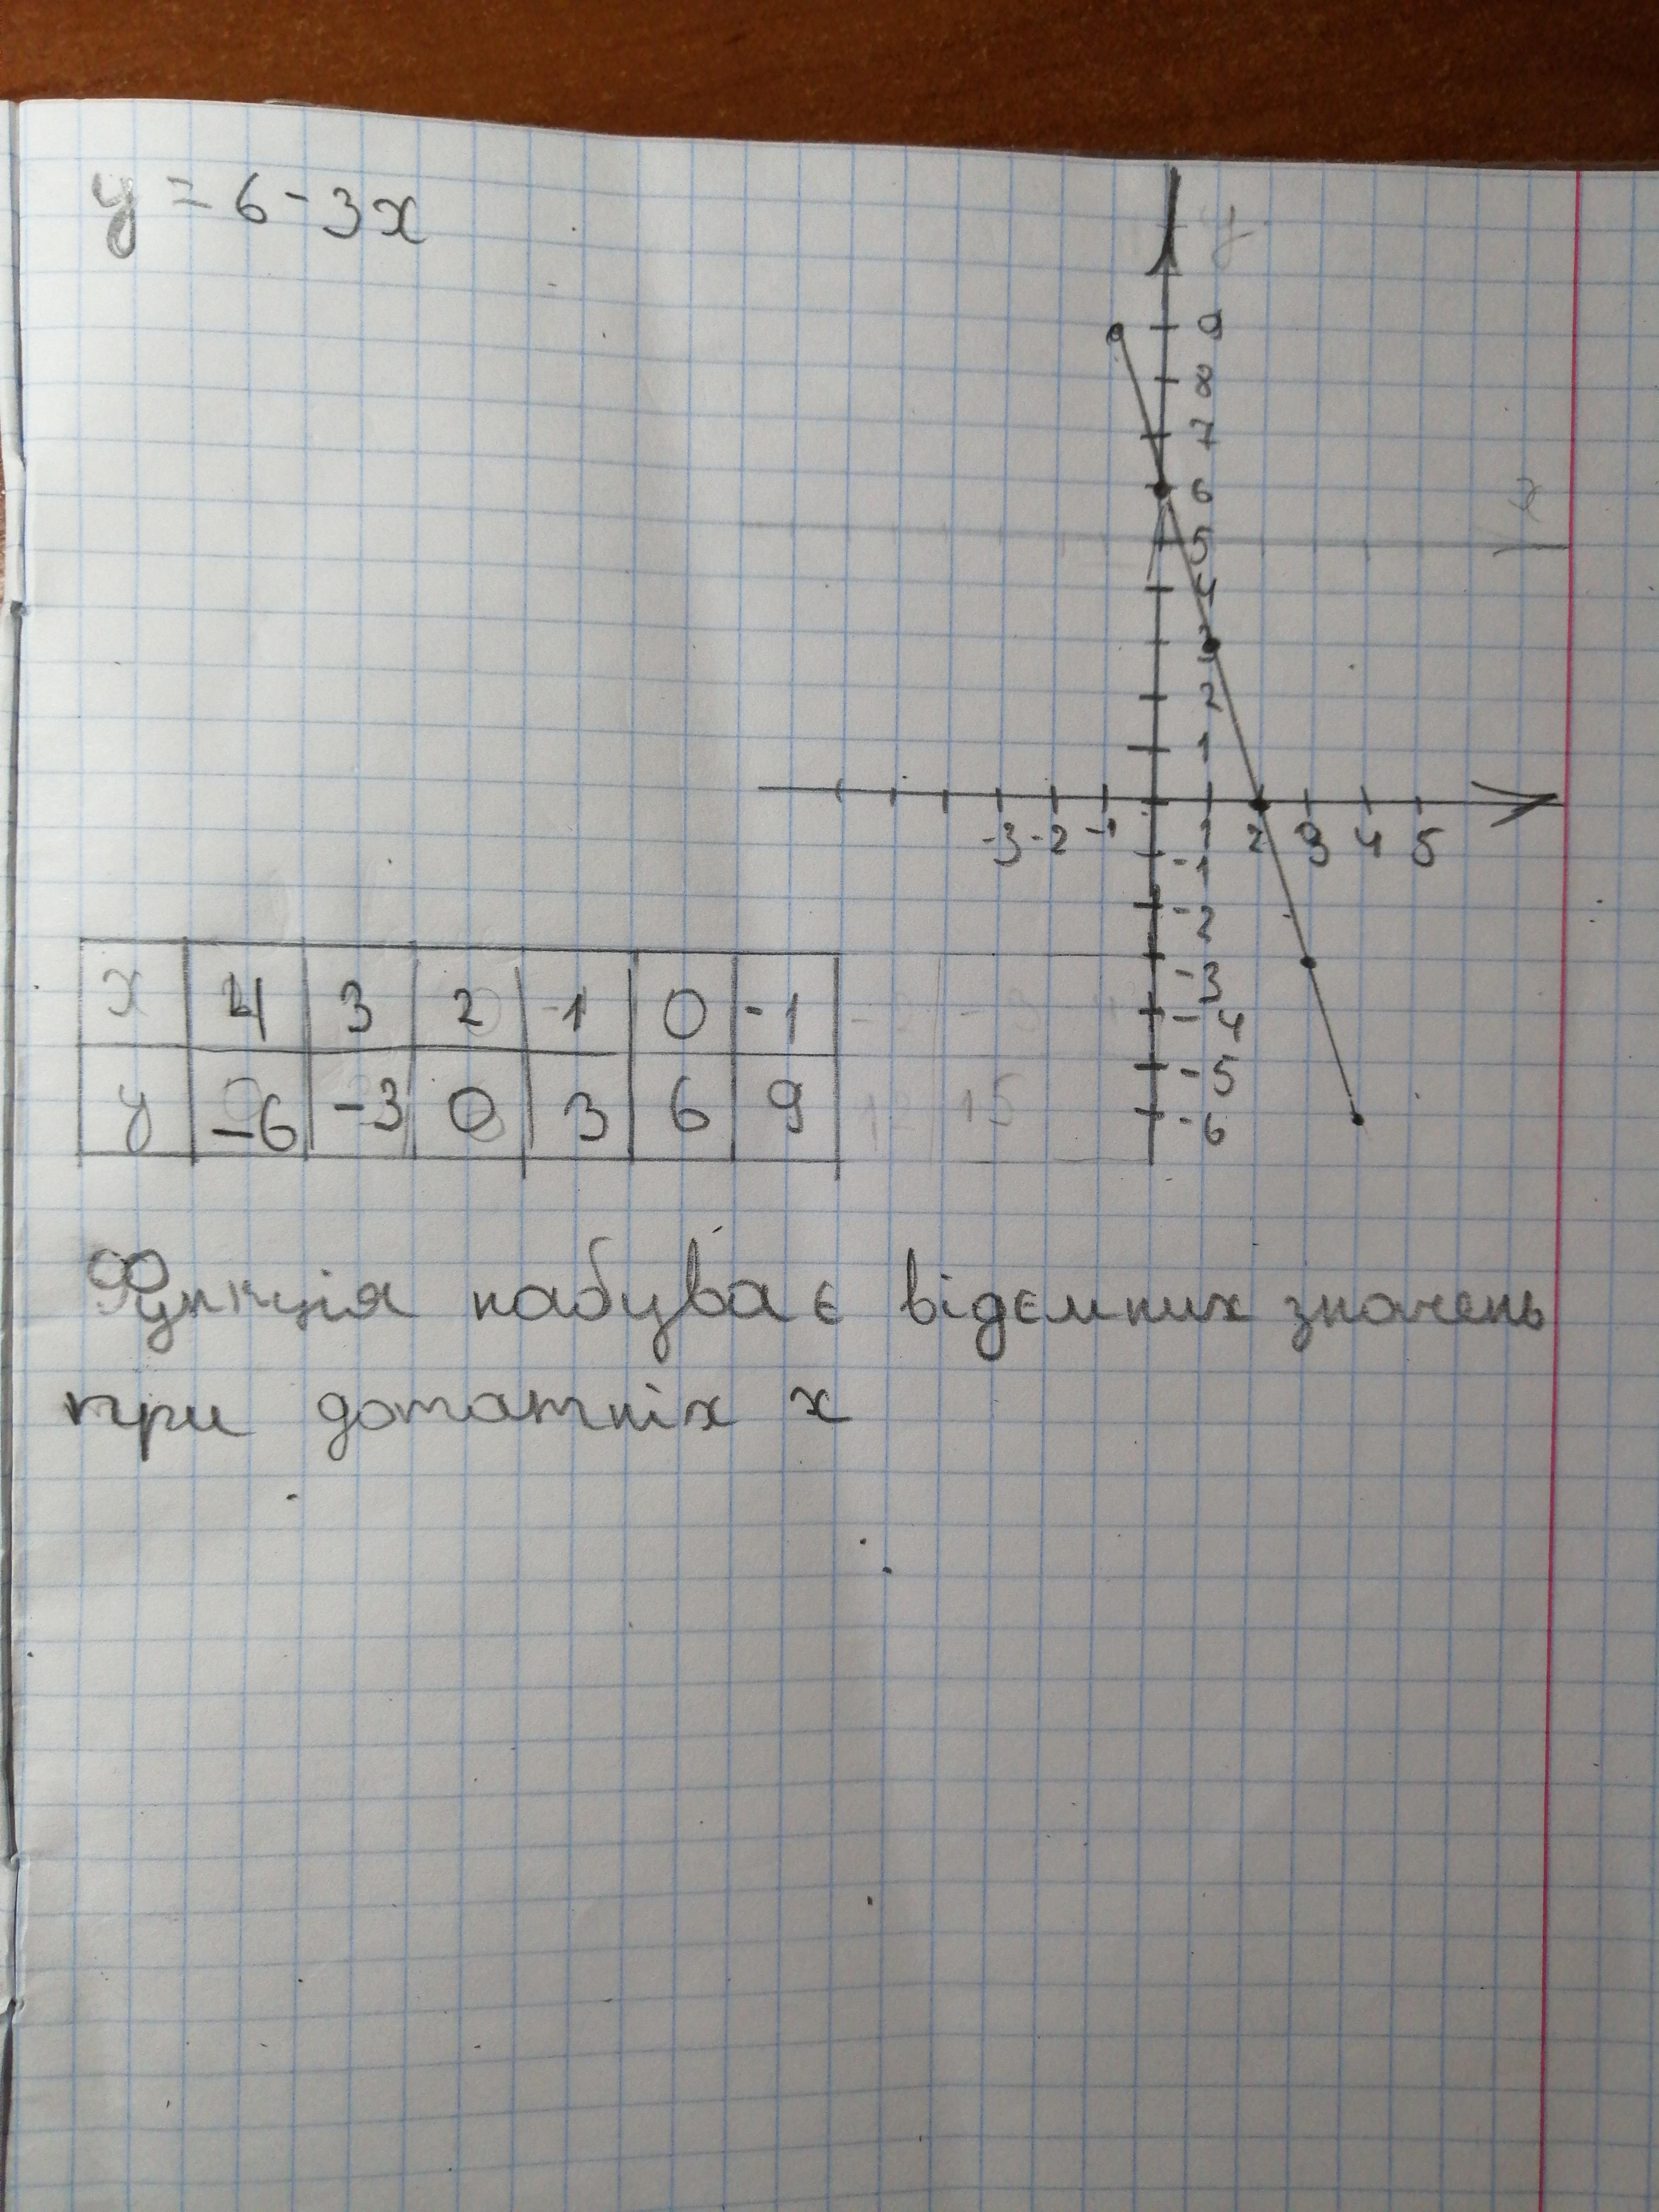 y = 6 - 3x
y
9
8
7
6
5
4
3
2
1
-3 -2 -1 1 2 3 4 5
-1
-2
-3
-4
-5
-6
x
x 4 3 2 1 0 -1
y -6 -3 0 3 6 9 12 15
Функція набуває відємних значень
при дотатніх x